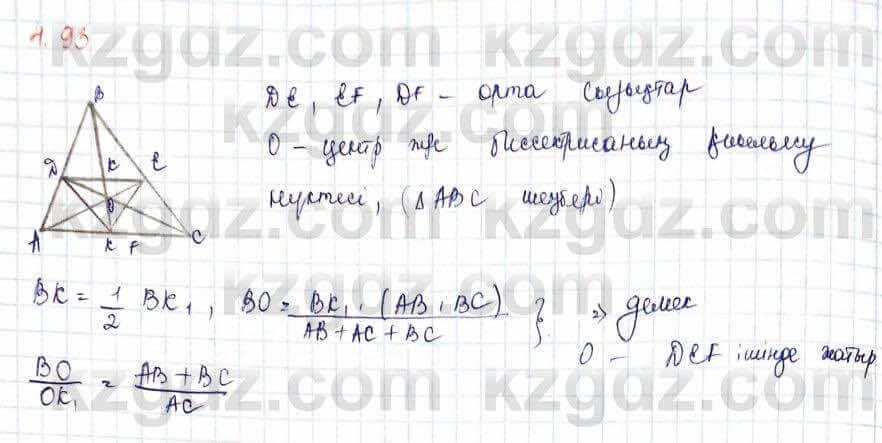 A. 93
B
DE, EF, DF – орта сызықтар
O – центр және биссектрисаның қиылысу
нүктесі, (ΔABC шеңбері)
D K E
O
A K F C
BK = 1/2 BK₁, BO = BK₁ · (AB + BC) / AB + AC + BC } ⇒ демек
O – DEF ішінде жатыр
BO / OK₁ = AB + BC / AC
kzgdz.com